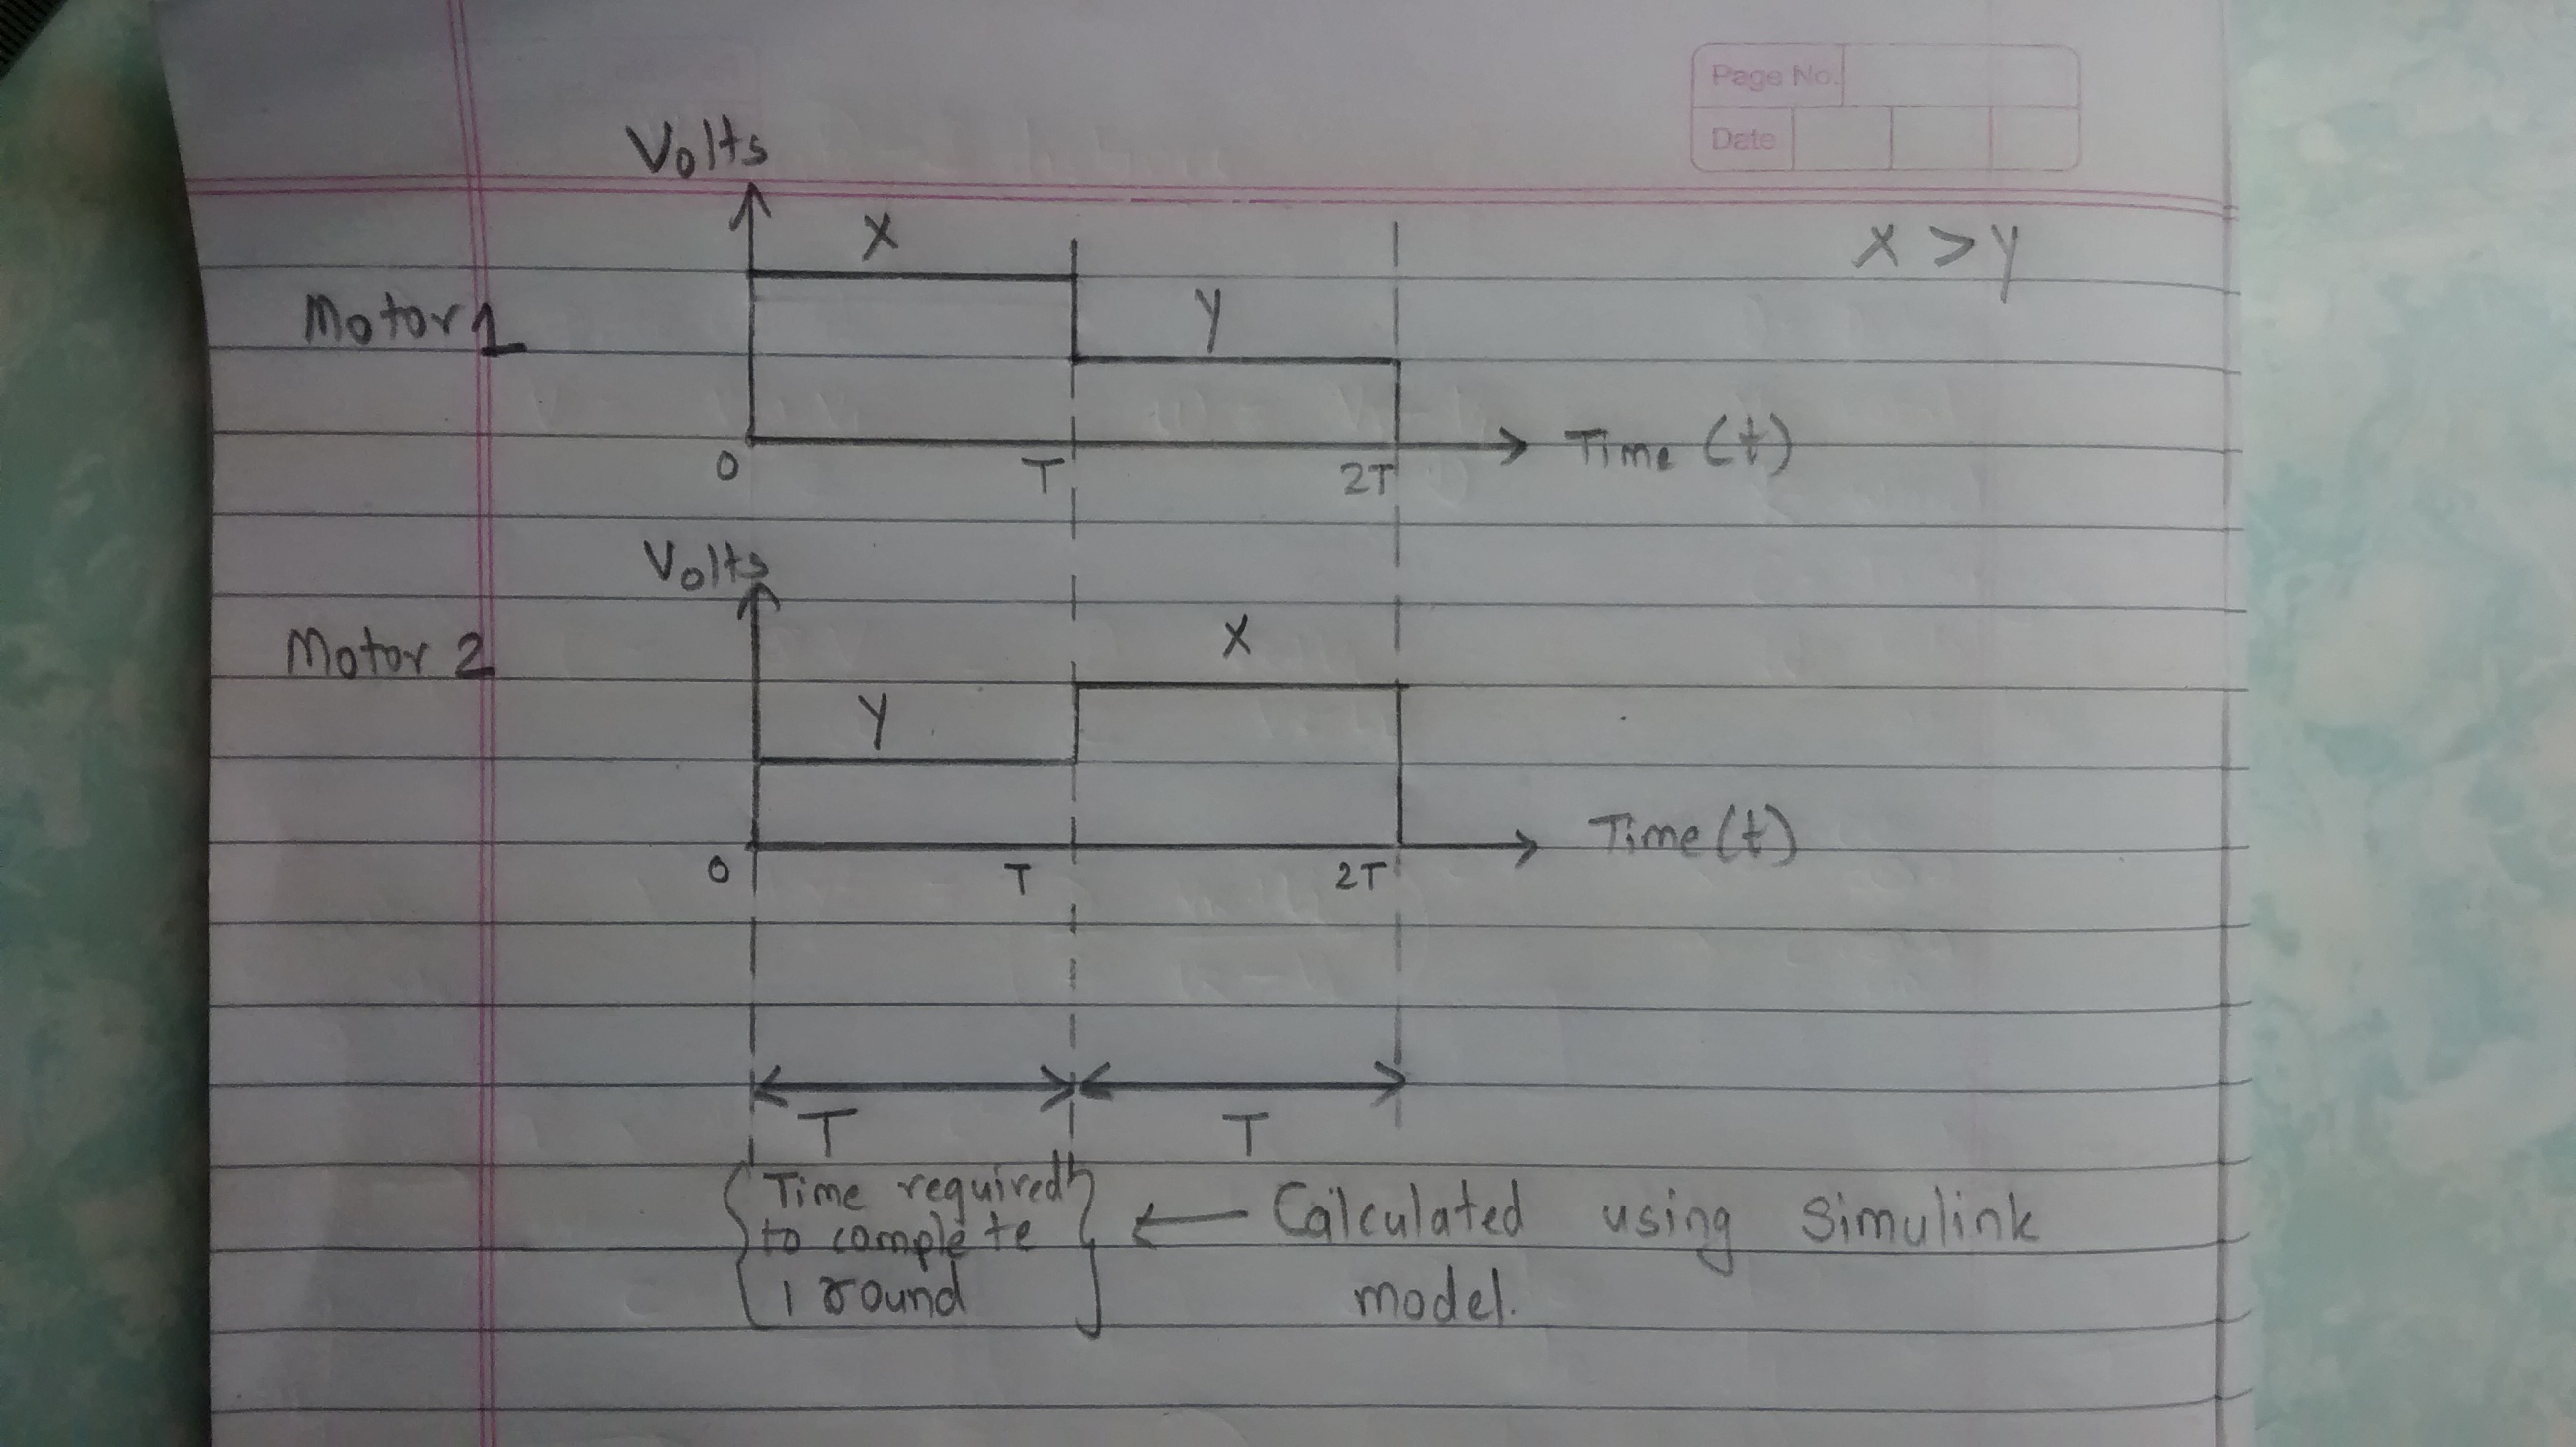 Page No.
Date
Volts
X
X > Y
Motor 1
Y
0
T
2T
Time (t)
Volts
Motor 2
X
Y
0
T
2T
Time (t)
T
T
Time required
to complete
1 round
Calculated using Simulink
model.